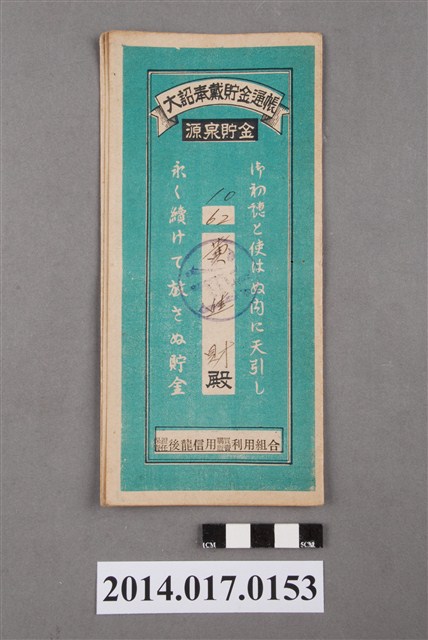 大詔奉戴貯金通帳
源泉貯金
使はぬ内に天引し
永く續けて放さぬ貯金
10
62
黄
財
殿
後龍信用購買利用組合
1CM
5CM
2014.017.0153